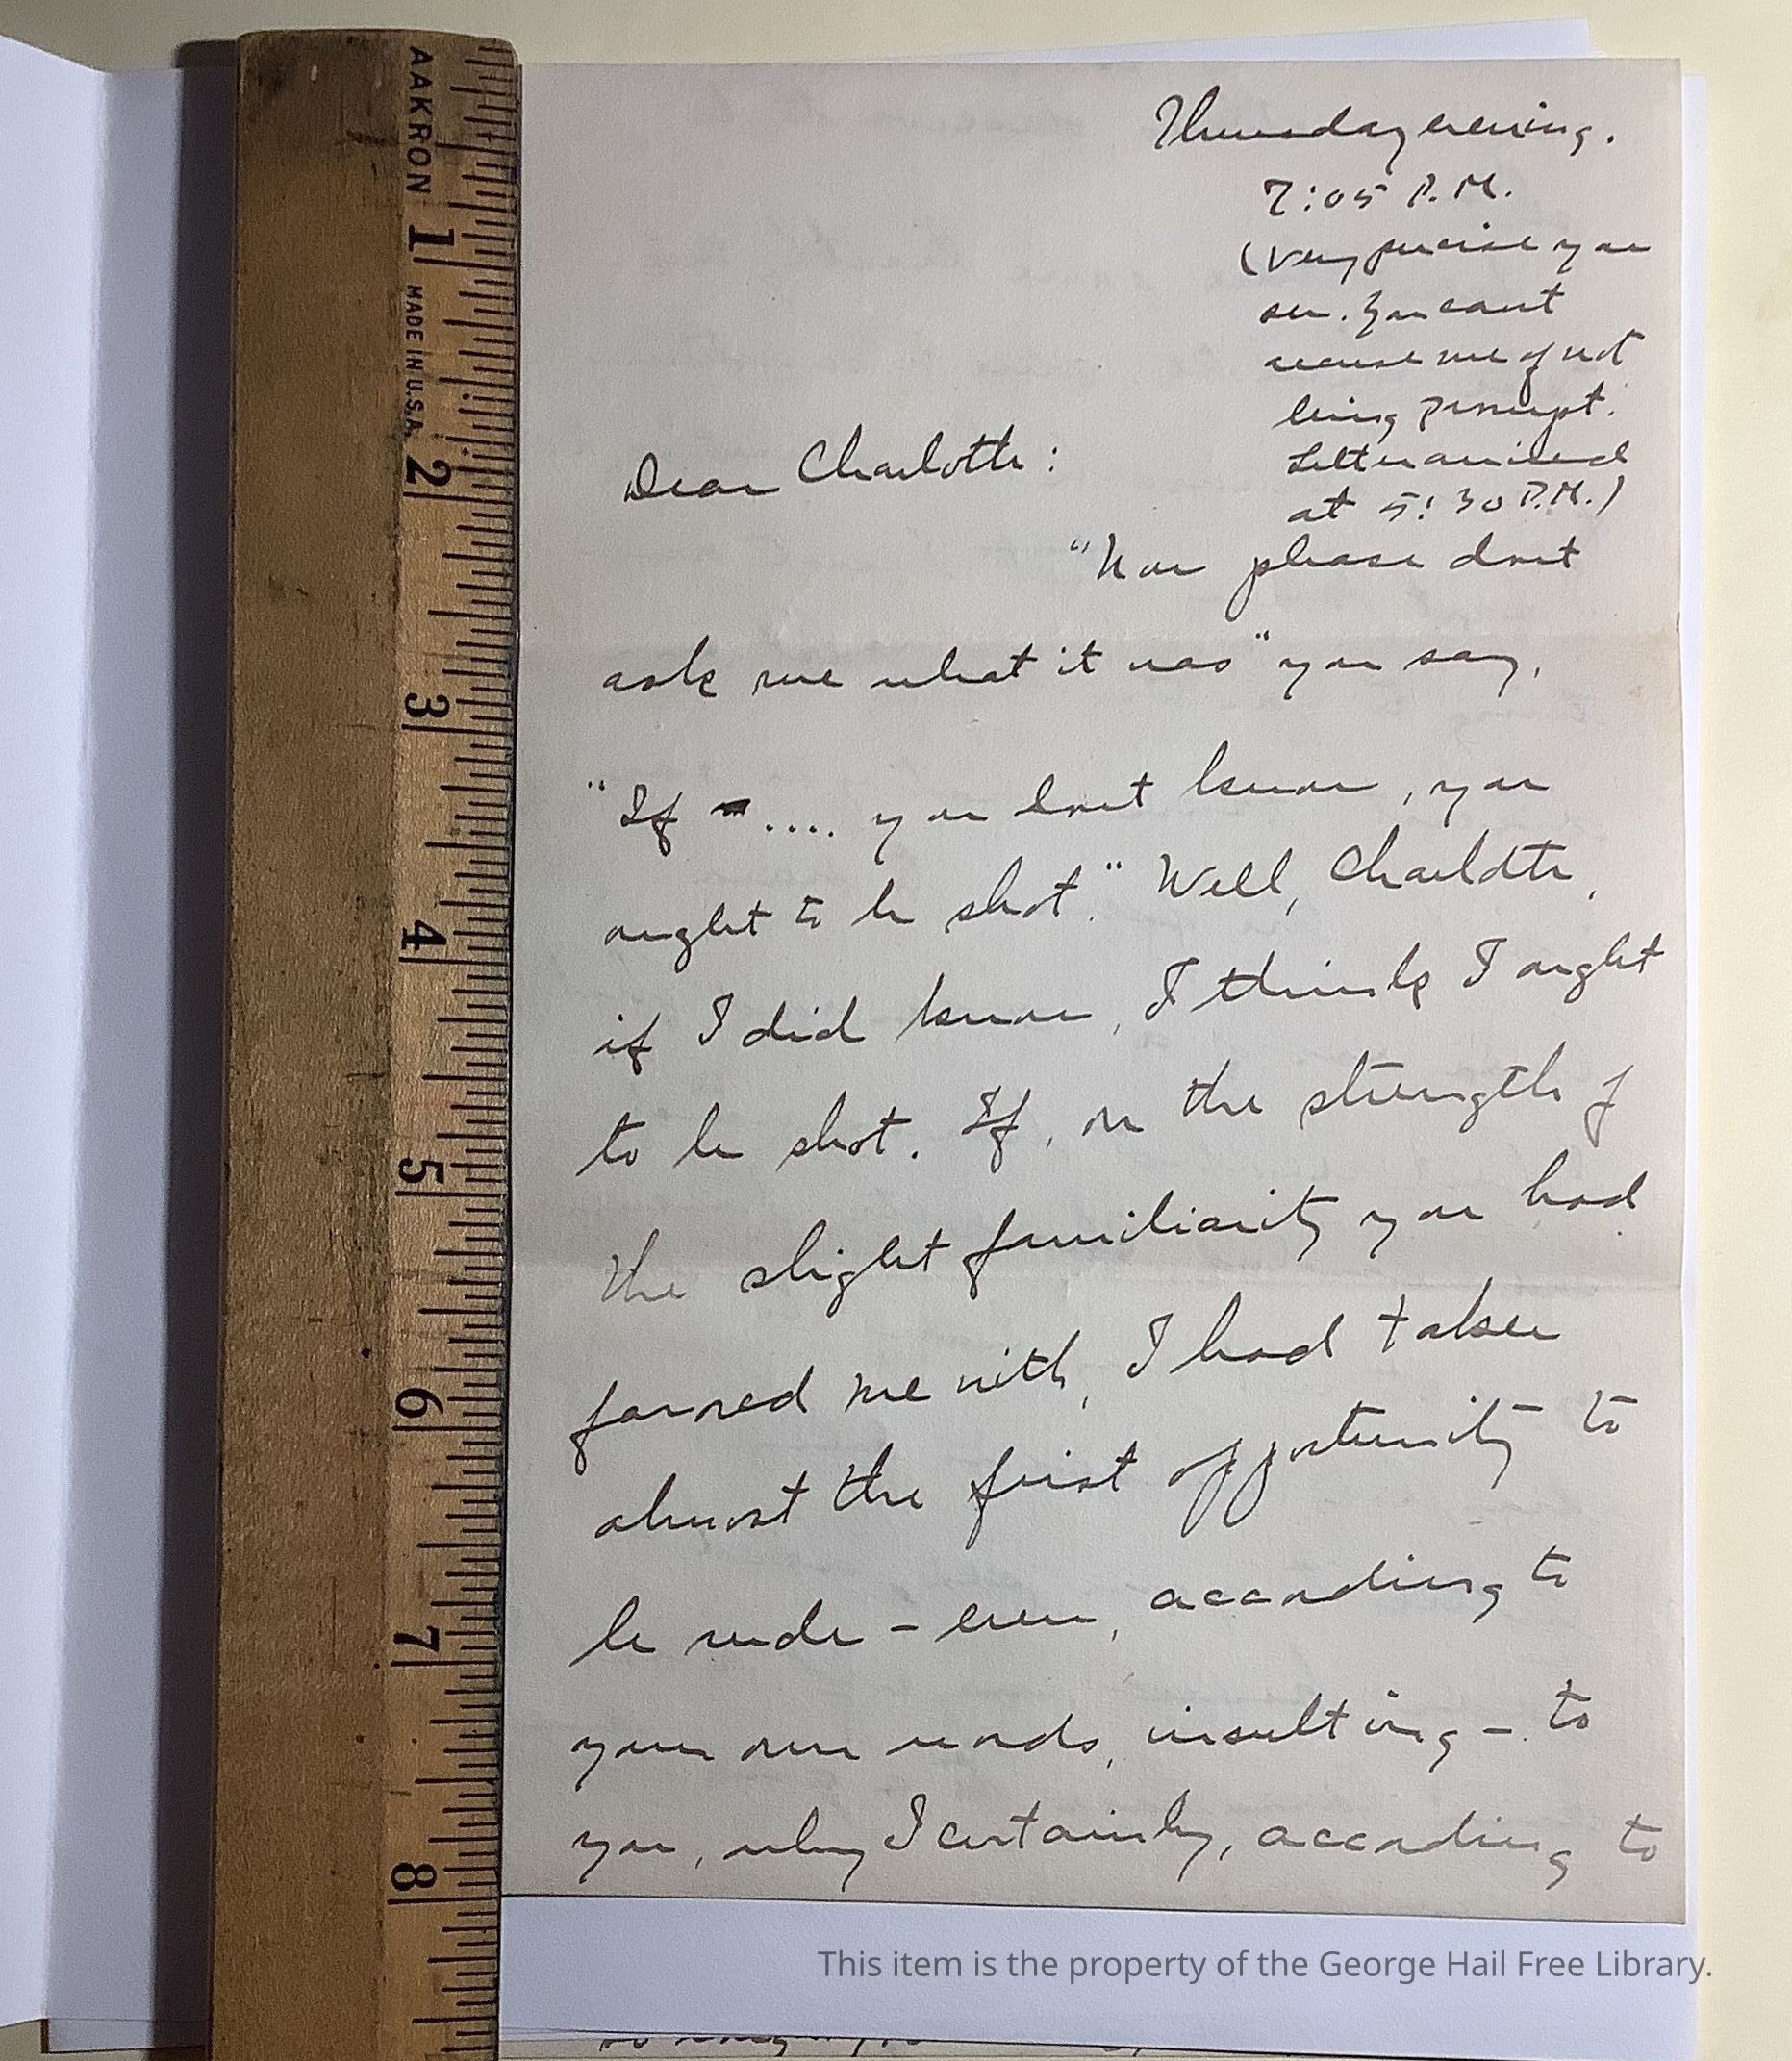 AAKRON
MADE IN U.S.A.
1
2
3
4
5
6
7
8
Thursday evening.
7:05 P.M.
(Very precise you
see. You cant
accuse me of not
being prompt.
Letter arrived
at 5:30 P.M.)
Dear Charlotte:
"Now please dont
ask me what it was" you say,
"If .... you dont know, you
ought to be shot." Well, Charlotte,
if I did know, I think I ought
to be shot. If, on the strength of
the slight familiarity you had
favored me with, I had taken
almost the first opportunity to
be rude – even, according to
your own words, insulting – to
you, why I certainly, according to
This item is the property of the George Hail Free Library.